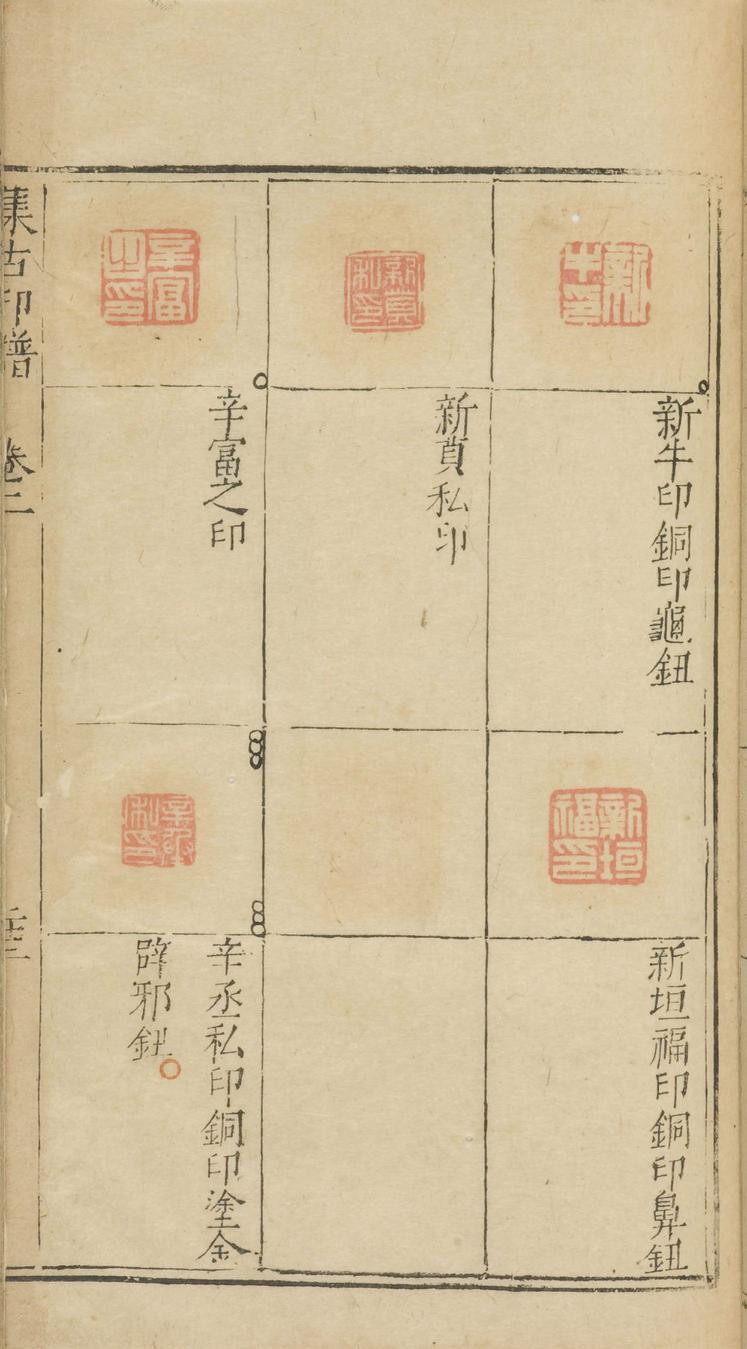 新牛印
新牛印銅印龜鈕
新垣福印
新垣福印銅印鼻鈕
新私印
新私印
辛富之印
辛富之印
辛丞私印
辛丞私印銅印塗金
辟邪鈕
集古印譜
卷二